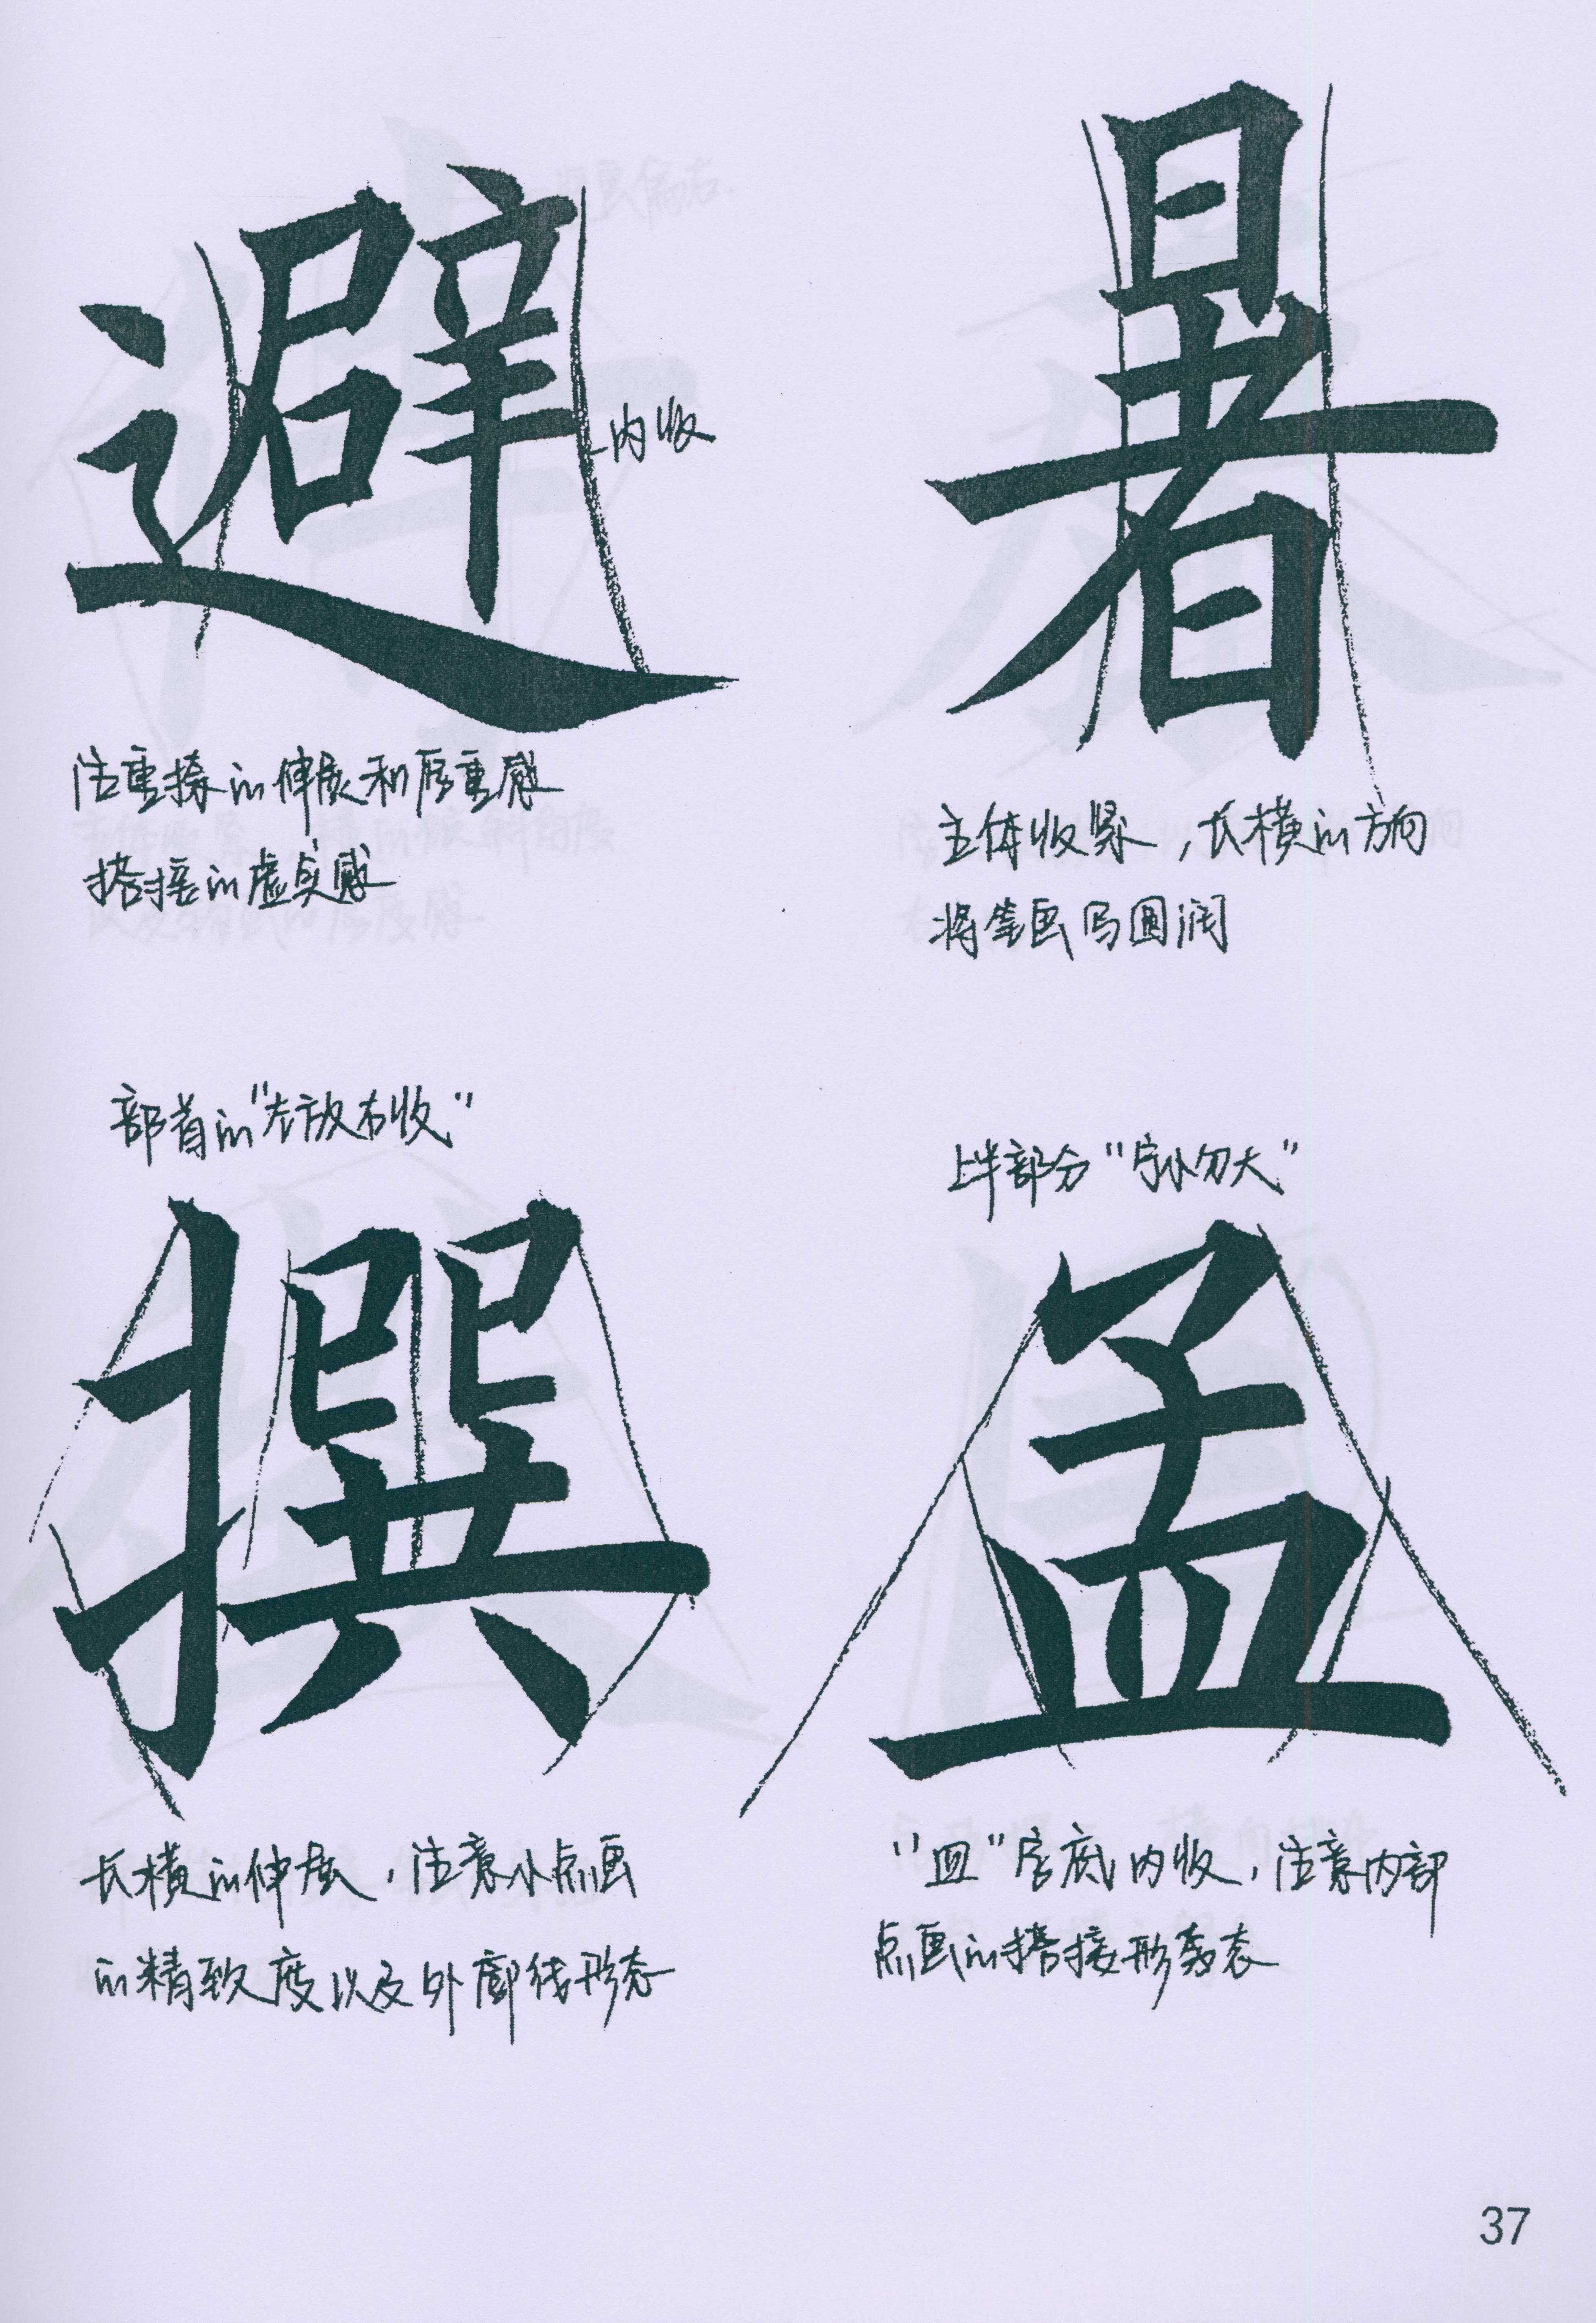 避
内收
注重捺的伸展和厚重感
搭接的虚实感
暑
主体收紧，长横的方向
将笔画写圆润
部首的“左放右收”
撰
长横的伸展，注意小点画
的精致度以及外廓线形态
上半部分“宁小勿大”
孟
“皿”字底内收，注意内部
点画的搭接形态
37